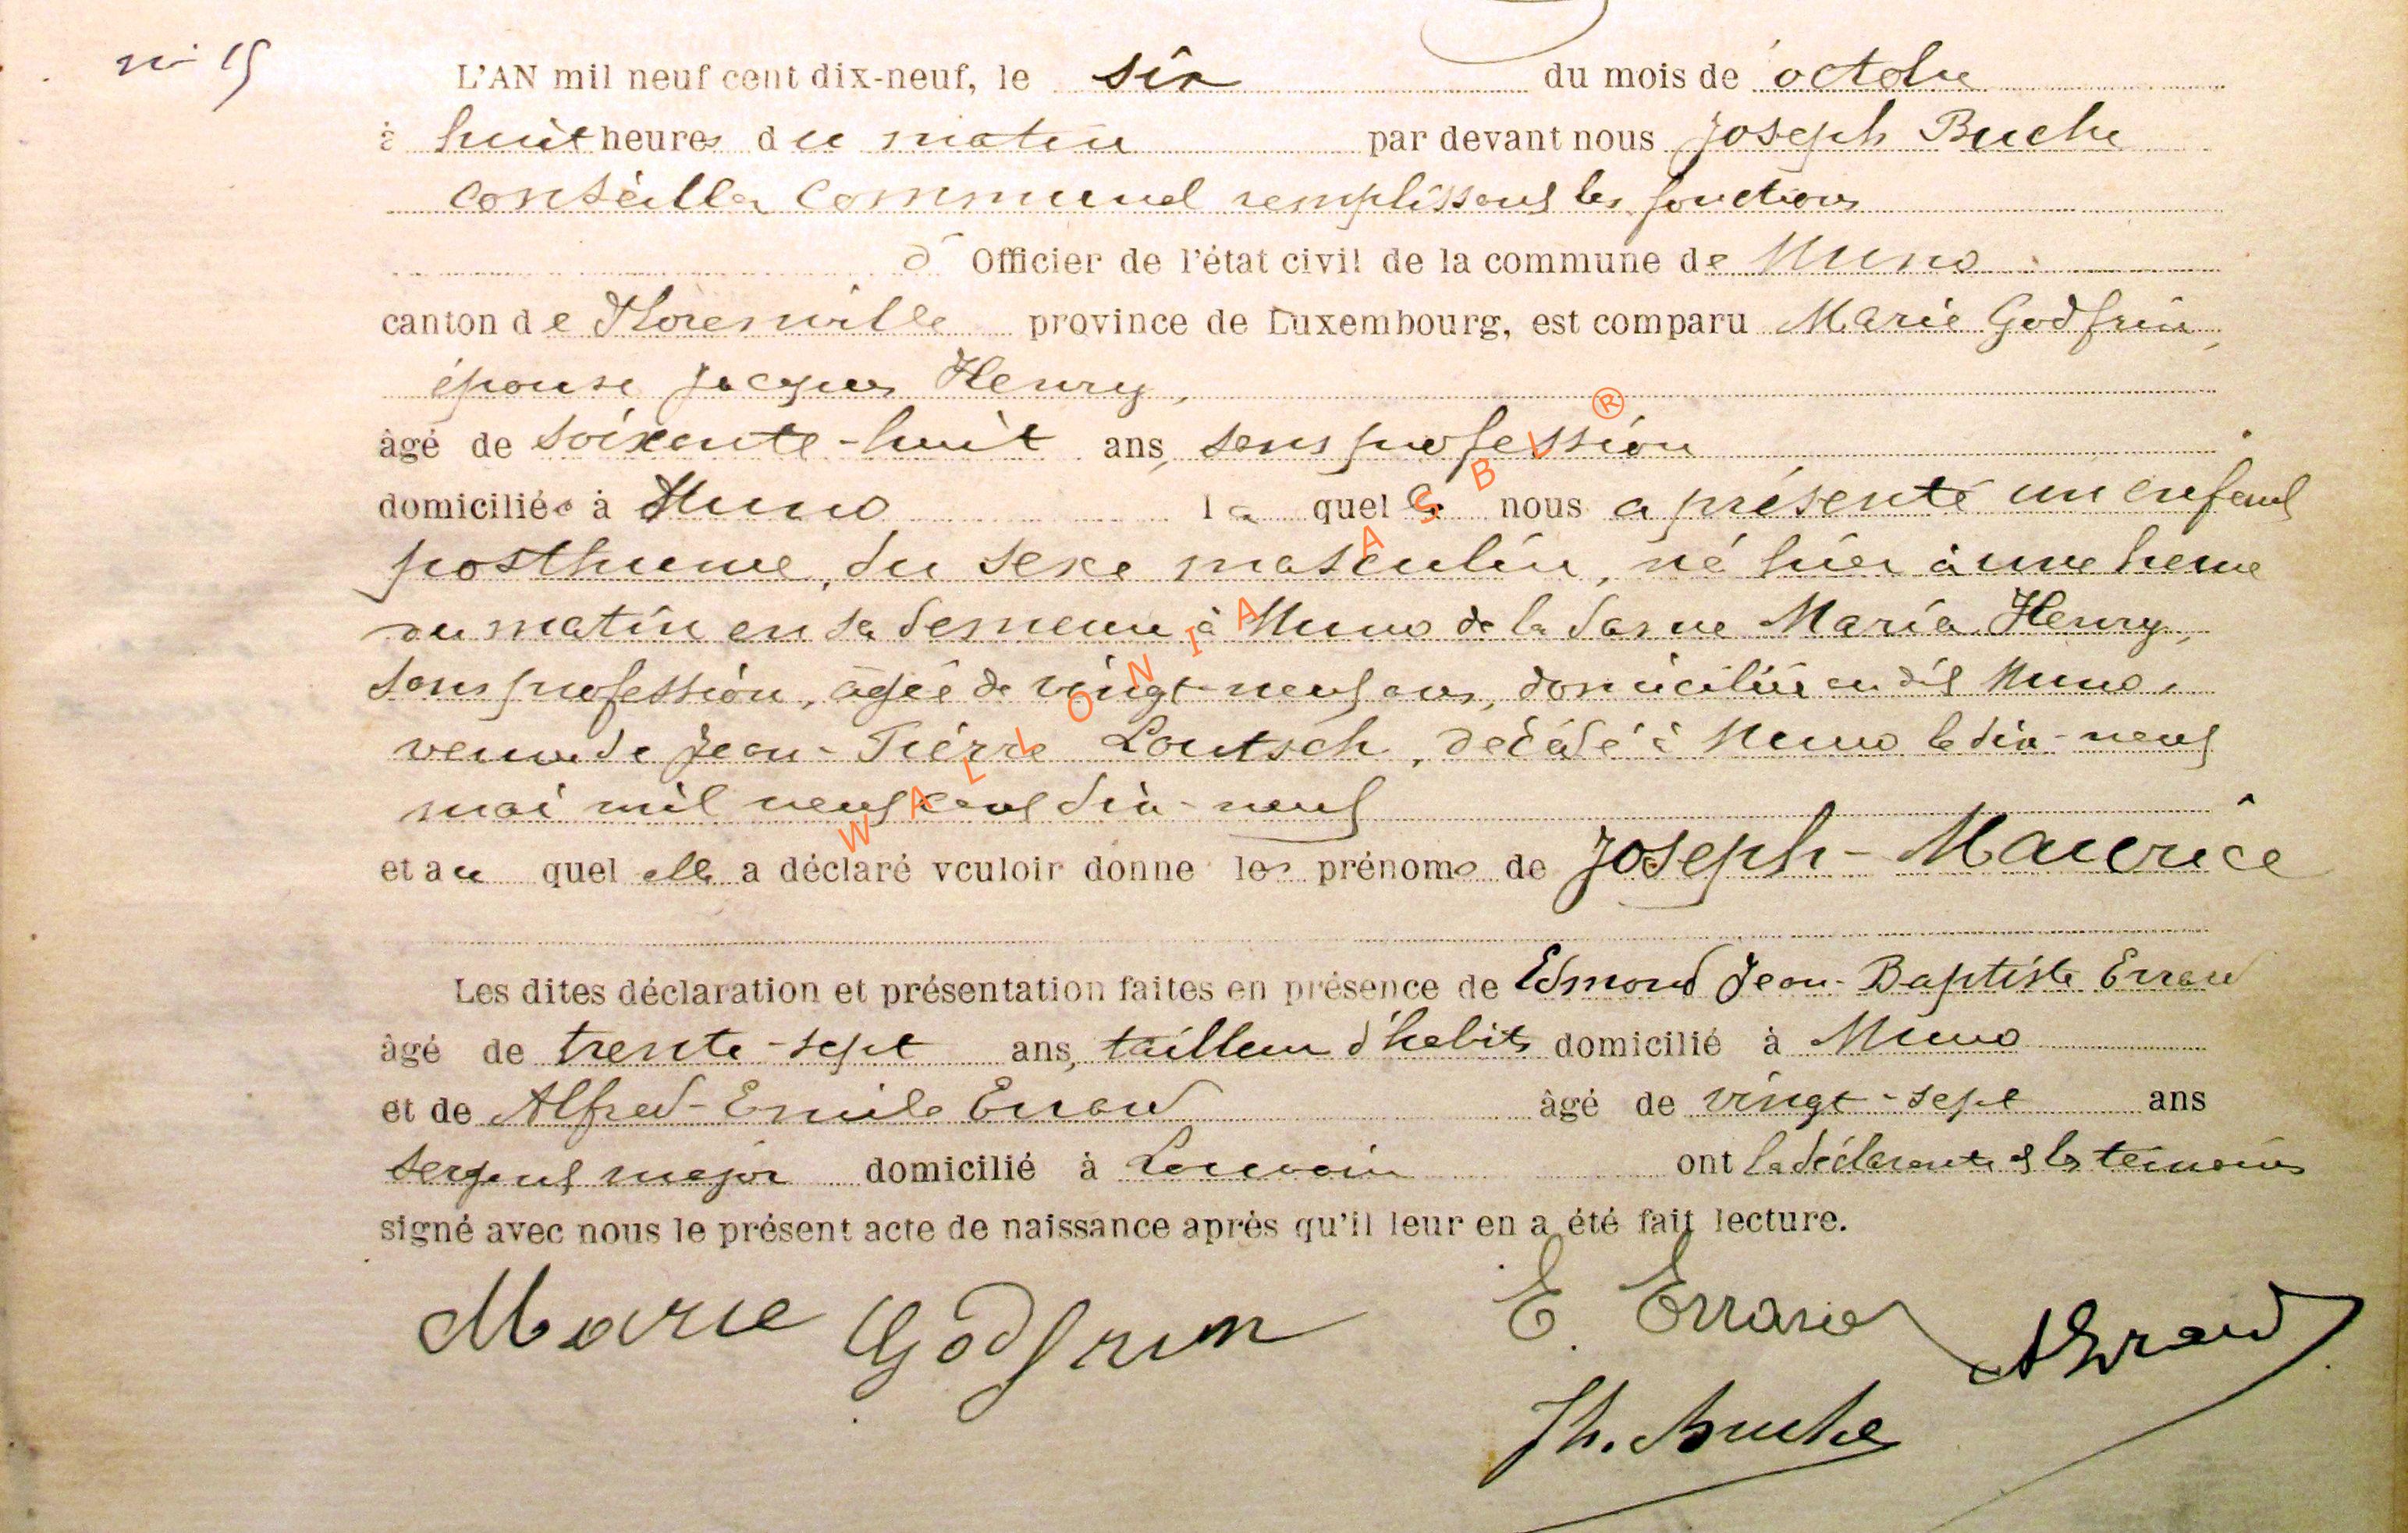 n° 15
L'AN mil neuf cent dix-neuf, le six du mois de octobre
à huit heures du matin par devant nous Joseph Buche
conseiller communal remplissant les fonctions
d' Officier de l'état civil de la commune de Muno
canton de Florenville province de Luxembourg, est comparu Marie Godfrin,
épouse Jacques Henry,
âgé de soixante-huit ans, sans profession
domiciliée à Muno laquelle nous a présenté un enfant
posthume, du sexe masculin, né hier à une heure
du matin en sa demeure à Muno de la dame Maria Henry,
sans profession, âgée de vingt-neuf ans, domiciliée au dit Muno,
veuve de Jean-Pierre Loutsch, décédé à Muno le dix-neuf
mai mil neuf cent dix-neuf
et au quel elle a déclaré vouloir donne les prénoms de Joseph-Maurice
Les dites déclaration et présentation faites en présence de Edmond Jean-Baptiste Errard
âgé de trente-sept ans, tailleur d'habits domicilié à Muno
et de Alfred-Emile Errard âgé de vingt-sept ans
sergent major domicilié à Louvain ont la déclarante et les témoins
signé avec nous le présent acte de naissance après qu'il leur en a été fait lecture.
Marie Godfrin E. Errard AErrard
Jh. Buche
WALLONIA ASBL ®